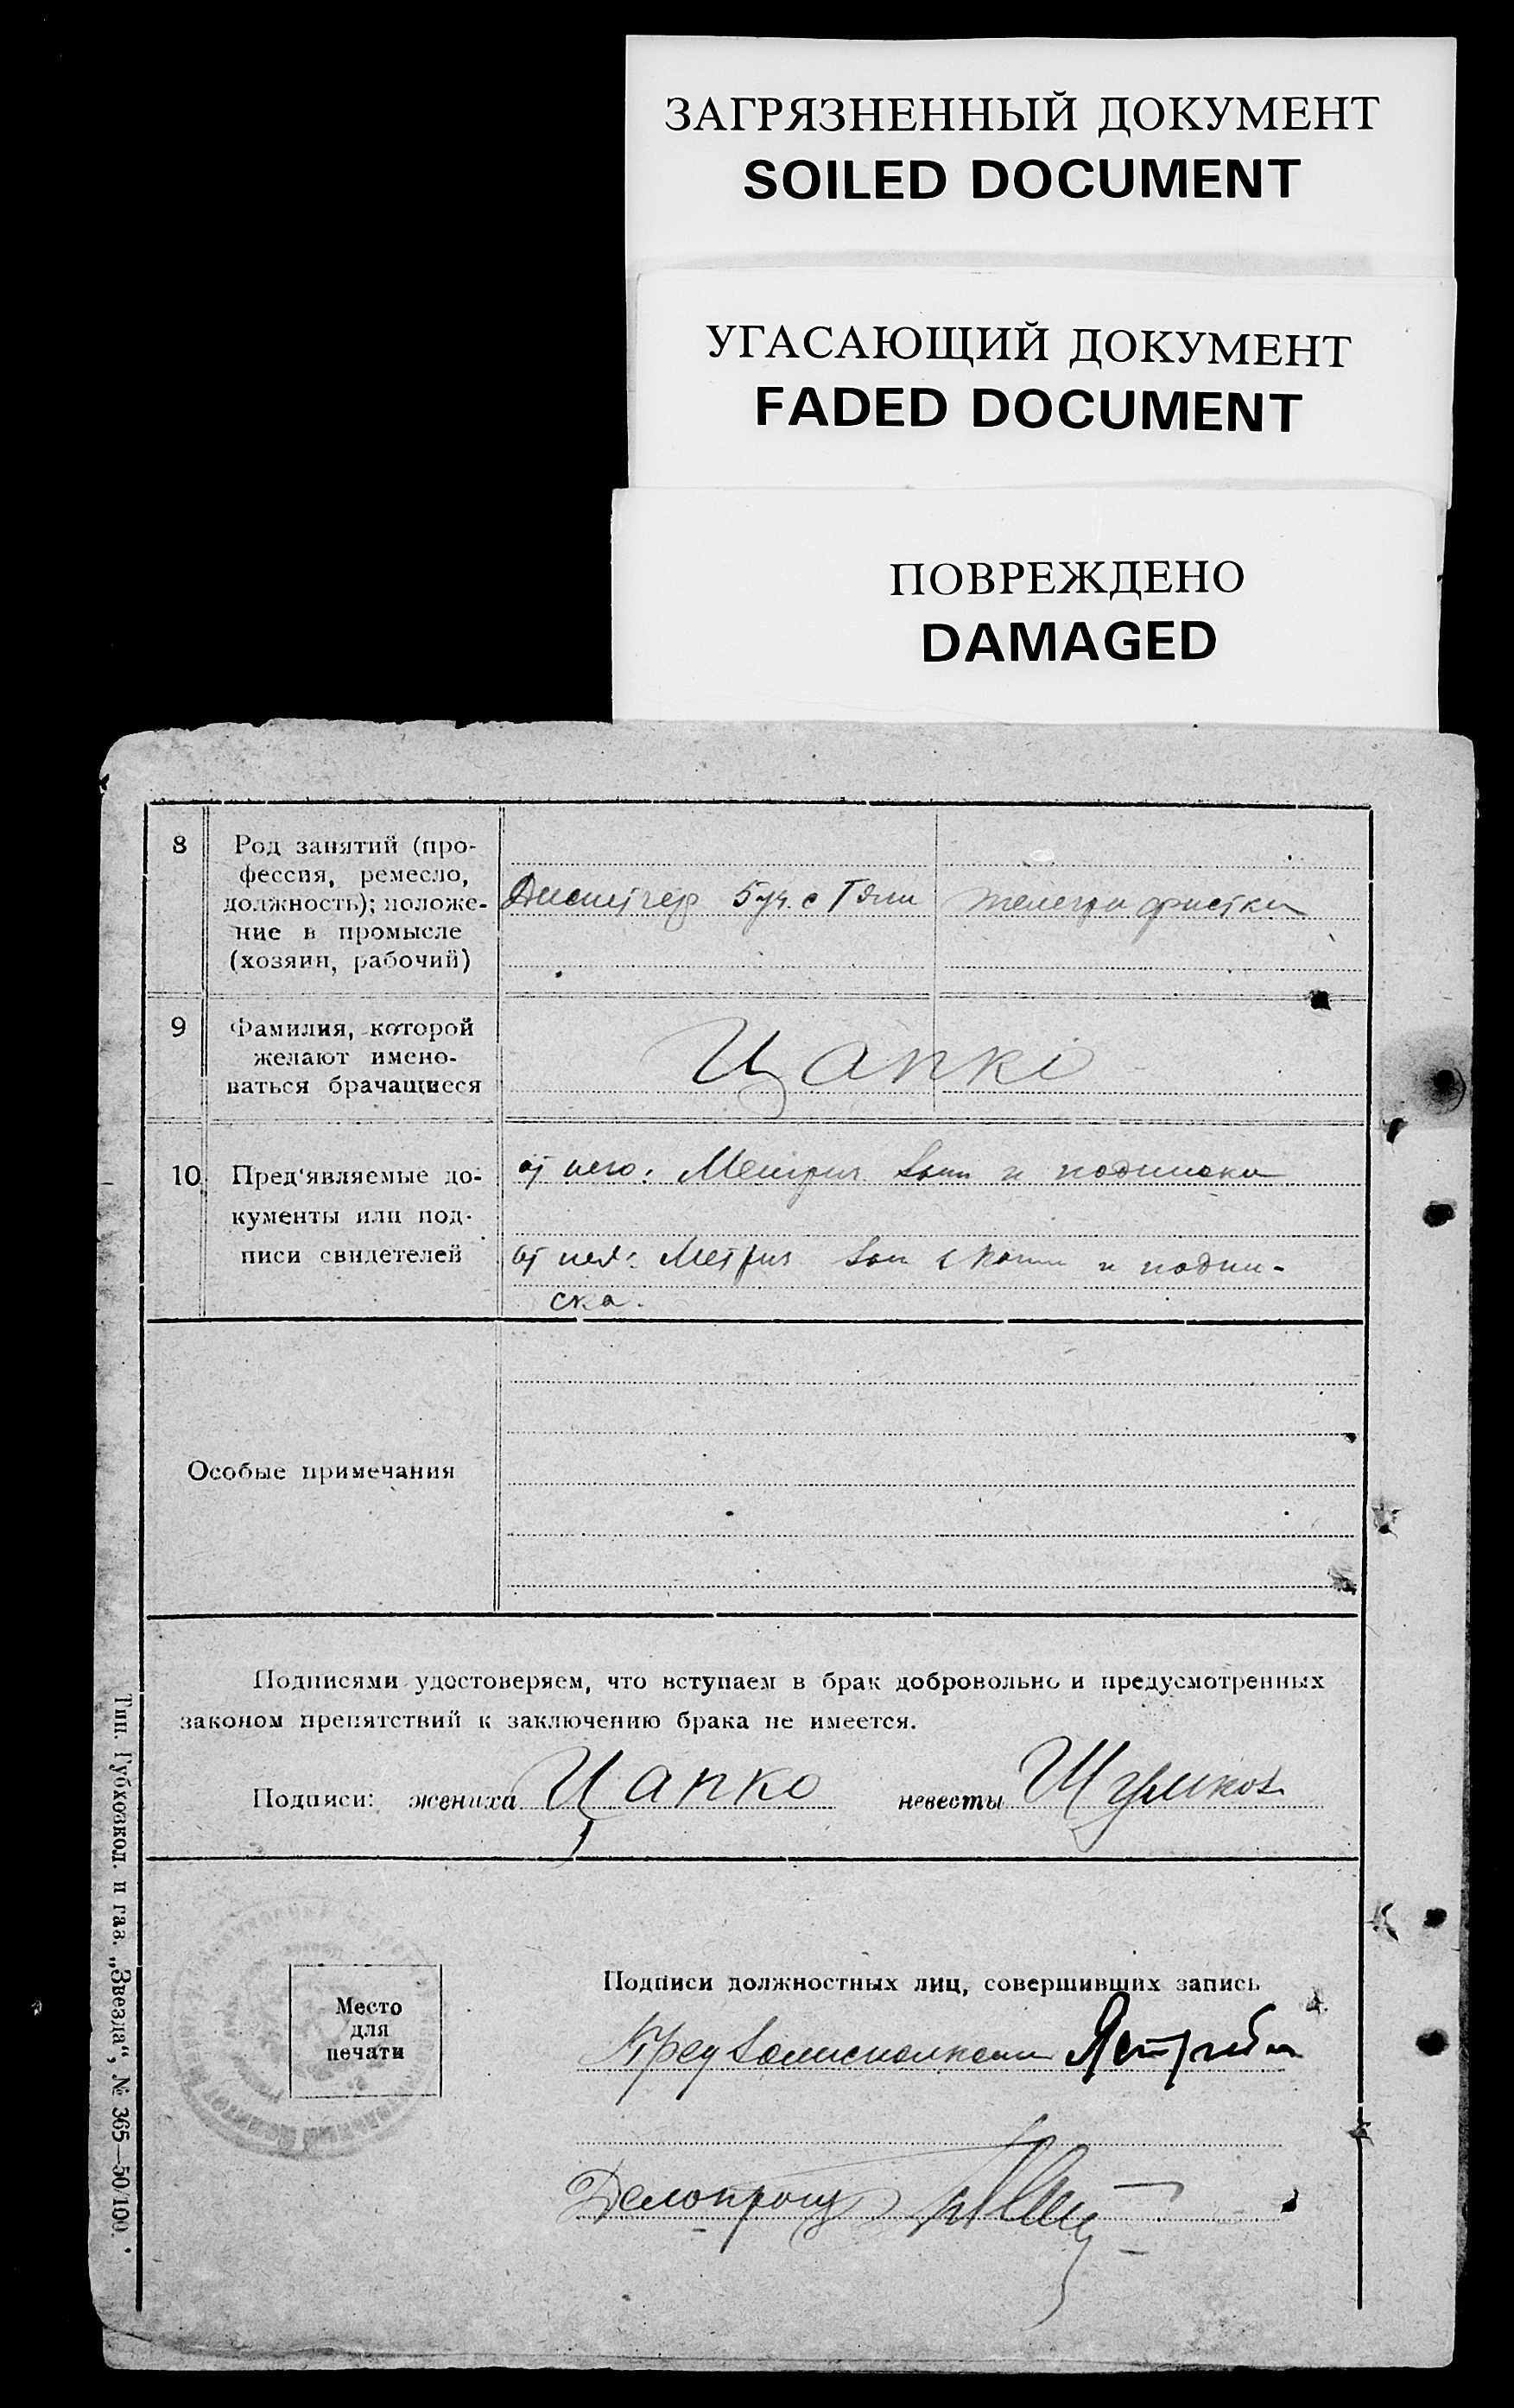 ЗАГРЯЗНЕННЫЙ ДОКУМЕНТ
SOILED DOCUMENT
УГАСАЮЩИЙ ДОКУМЕНТ
FADED DOCUMENT
ПОВРЕЖДЕНО
DAMAGED
8
Род занятий (про-
фессия, ремесло,
должность); положе-
ние в промысле
(хозяин, рабочий)
5 уч. с
телеграфистка
9
Фамилия, которой
желают имено-
ваться брачащиеся
Цапко
10
Пред'являемые до-
кументы или под-
писи свидетелей
от него: Метрич и подписка
от нея: Метрич и подпи-
ска.
Особые примечания
Подписями удостоверяем, что вступаем в брак добровольно и предусмотренных
законом препятствий к заключению брака не имеется.
Подписи: жениха Цапко невесты
Место
для
печати
Подписи должностных лиц, совершивших запись
Пред
Делопроиз
Тип. Губхозкол. и газ. „Звезда", № 365—50/100.